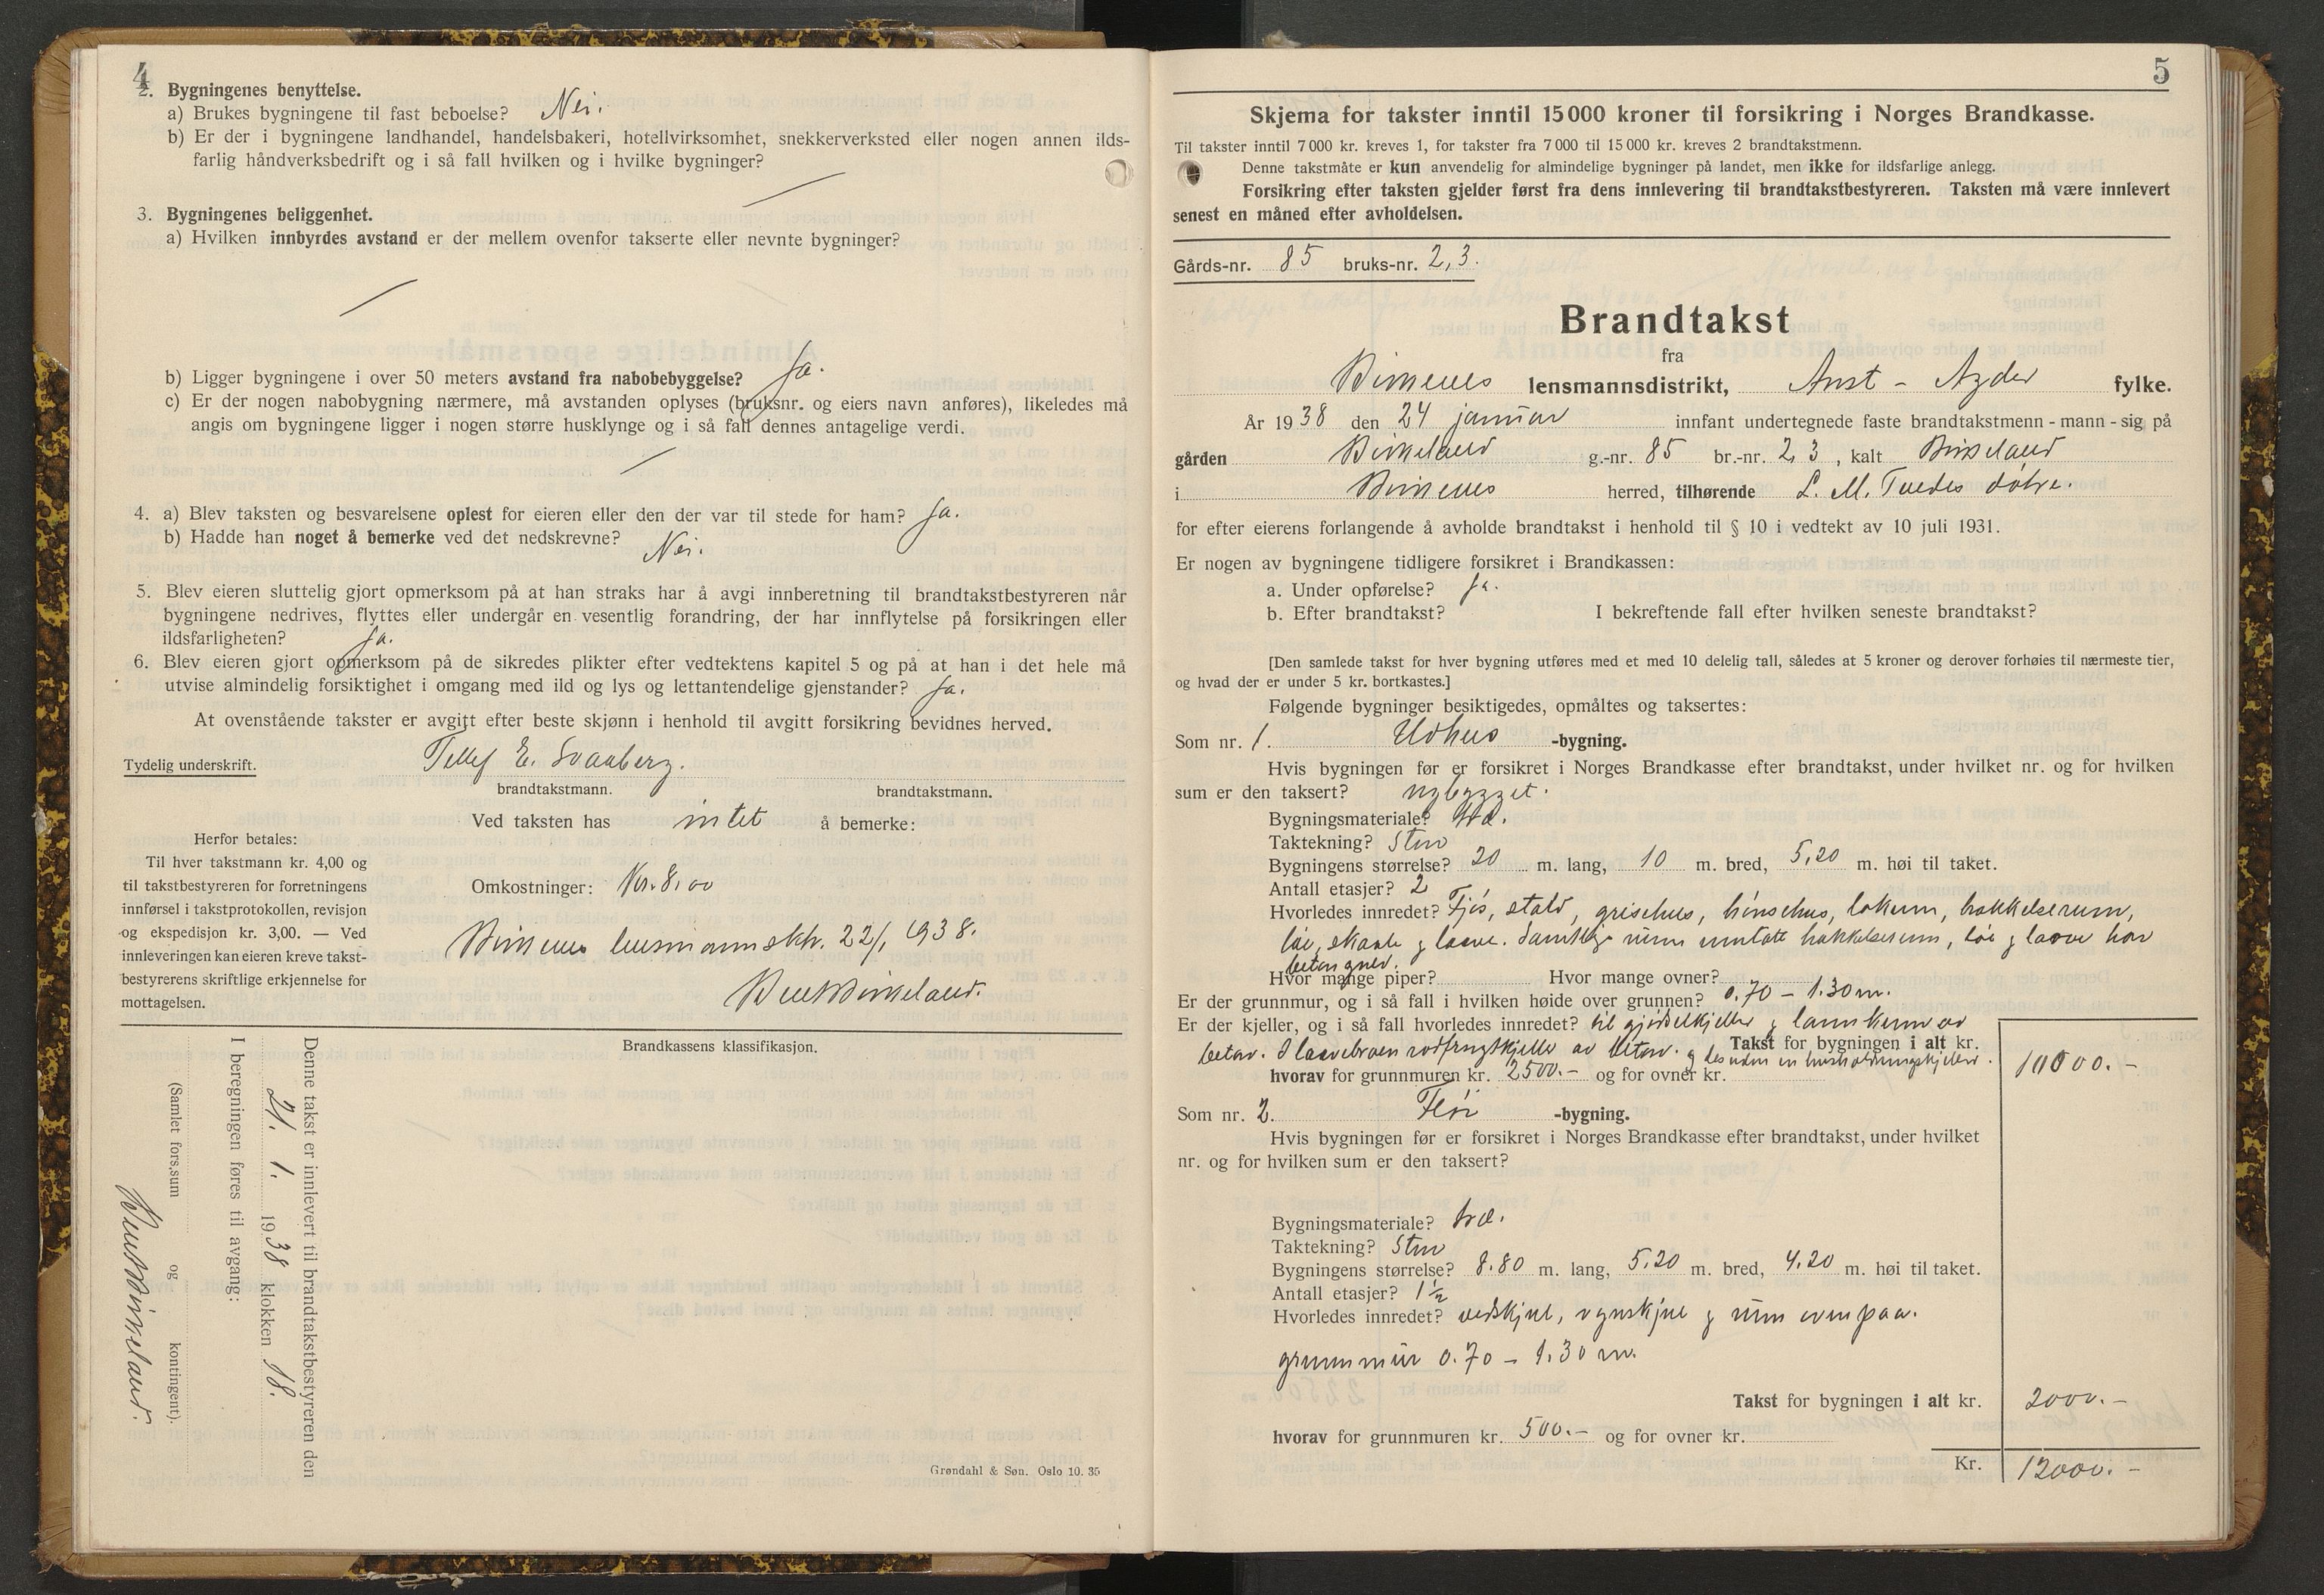 4
2. Bygningenes benyttelse.
a) Brukes bygningene til fast beboelse? Nei.
b) Er der i bygningene landhandel, handelsbakeri, hotellvirksomhet, snekkerverksted eller nogen annen ilds-
farlig håndverksbedrift og i så fall hvilken og i hvilke bygninger?
3. Bygningenes beliggenhet.
a) Hvilken innbyrdes avstand er der mellem ovenfor takserte eller nevnte bygninger?
b) Ligger bygningene i over 50 meters avstand fra nabobebyggelse? Ja.
c) Er der nogen nabobygning nærmere, må avstanden oplyses (bruksnr. og eiers navn anføres), likeledes må
angis om bygningene ligger i nogen større husklynge og i så fall dennes antagelige verdi.
4. a) Blev taksten og besvarelsene oplest for eieren eller den der var til stede for ham? Ja.
b) Hadde han noget å bemerke ved det nedskrevne? Nei.
5. Blev eieren sluttelig gjort opmerksom på at han straks har å avgi innberetning til brandtakstbestyreren når
bygningene nedrives, flyttes eller undergår en vesentlig forandring, der har innflytelse på forsikringen eller
ildsfarligheten? Ja.
6. Blev eieren gjort opmerksom på de sikredes plikter efter vedtektens kapitel 5 og på at han i det hele må
utvise almindelig forsiktighet i omgang med ild og lys og lettantendelige gjenstander? Ja.
At ovenstående takster er avgitt efter beste skjønn i henhold til avgitt forsikring bevidnes herved.
Tydelig underskrift. Tellef E. Svaaberg.
brandtakstmann. brandtakstmann.
Ved taksten has intet å bemerke:
Herfor betales:
Til hver takstmann kr. 4,00 og
til takstbestyreren for forretningens
innførsel i takstprotokollen, revisjon
og ekspedisjon kr. 3,00. — Ved
innleveringen kan eieren kreve takst-
bestyrerens skriftlige erkjennelse for
mottagelsen.
Omkostninger: Kr. 8,00
Birkenes lensmannsktr. 22/1 1938.
Birkeland.
Denne takst er innlevert til brandtakstbestyreren den
21. 1. 1938 klokken 18.
I beregningen føres til avgang:
(Samlet fors.sum og kontingent).
Birkeland.
Brandkassens klassifikasjon.
Grøndahl & Søn. Oslo 10. 35
5
Skjema for takster inntil 15 000 kroner til forsikring i Norges Brandkasse.
Til takster inntil 7 000 kr. kreves 1, for takster fra 7 000 til 15 000 kr. kreves 2 brandtakstmenn.
Denne takstmåte er kun anvendelig for almindelige bygninger på landet, men ikke for ildsfarlige anlegg.
Forsikring efter taksten gjelder først fra dens innlevering til brandtakstbestyreren. Taksten må være innlevert
senest en måned efter avholdelsen.
Gårds-nr. 85 bruks-nr. 2,3.
Brandtakst
fra
Birkenes lensmannsdistrikt, Aust-Agder fylke.
År 1938 den 24 januar innfant undertegnede faste brandtakstmenn - mann - sig på
gården Birkeland g.-nr. 85 br.-nr. 2,3, kalt Birkeland
i Birkenes herred, tilhørende L. M. Tvedes døtre.
for efter eierens forlangende å avholde brandtakst i henhold til § 10 i vedtekt av 10 juli 1931.
Er nogen av bygningene tidligere forsikret i Brandkassen:
a. Under opførelse? Ja.
b. Efter brandtakst? I bekreftende fall efter hvilken seneste brandtakst?
[Den samlede takst for hver bygning utføres med et med 10 delelig tall, således at 5 kroner og derover forhøies til nærmeste tier,
og hvad der er under 5 kr. bortkastes.]
Følgende bygninger besiktigedes, opmåltes og taksertes:
Som nr. 1. Udhus -bygning.
Hvis bygningen før er forsikret i Norges Brandkasse efter brandtakst, under hvilket nr. og for hvilken
sum er den taksert? nybygget.
Bygningsmateriale? træ.
Taktekning? Sten
Bygningens størrelse? 20 m. lang, 10 m. bred, 5,20 m. høi til taket.
Antall etasjer? 2
Hvorledes innredet? Fjøs, stald, grisehus, hønsehus, lokum, hakkelserum,
løe, skaale g laave. Samtlige rum unntatt hakkelserum, løe g laave har
betongulv.
Hvor mange piper? Hvor mange ovner?
Er der grunnmur, og i så fall i hvilken høide over grunnen? 0.70 - 1.30 m.
Er der kjeller, og i så fall hvorledes innredet? til gjødselkjeller g landkum av
betong. I laavebroen rodfrugtkjeller av betong. g desuden en husholdningskjeller.
Takst for bygningen i alt kr. 10000.-
hvorav for grunnmuren kr. 2500.- og for ovner kr.
Som nr. 2. Fløi -bygning.
Hvis bygningen før er forsikret i Norges Brandkasse efter brandtakst, under hvilket
nr. og for hvilken sum er den taksert?
Bygningsmateriale? træ.
Taktekning? Sten
Bygningens størrelse? 8.80 m. lang, 5.20 m. bred, 4.20 m. høi til taket.
Antall etasjer? 1 ½
Hvorledes innredet? vedskjul, vognskjul g rum ovenpaa.
grunnmur 0.70 - 1.30 m.
Takst for bygningen i alt kr. 2000.-
hvorav for grunnmuren kr. 500.- og for ovner kr.
Kr. 12000.-